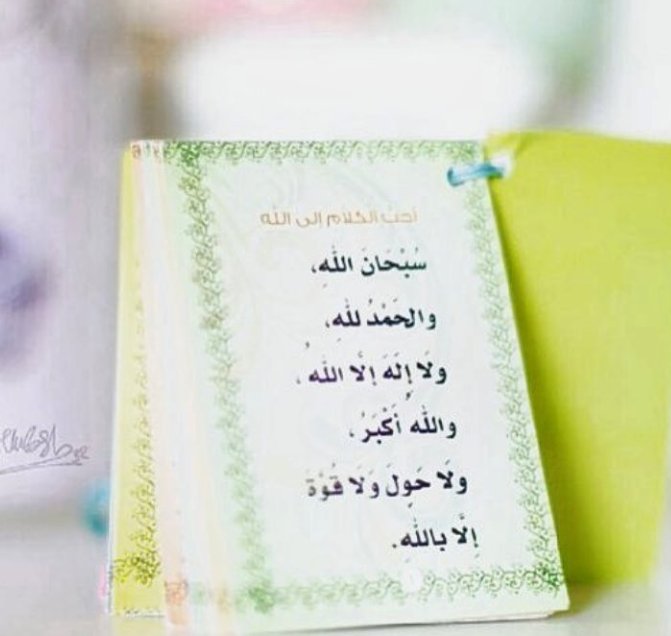 أحب الكلام إلى الله
سُبْحَانَ اللهِ،
والحَمْدُ للهِ،
ولَا إِلَهَ إِلَّا اللهُ،
واللهُ أَكْبَرُ،
ولَا حَولَ وَلَا قُوَّة
إِلَّا بِاللهِ.